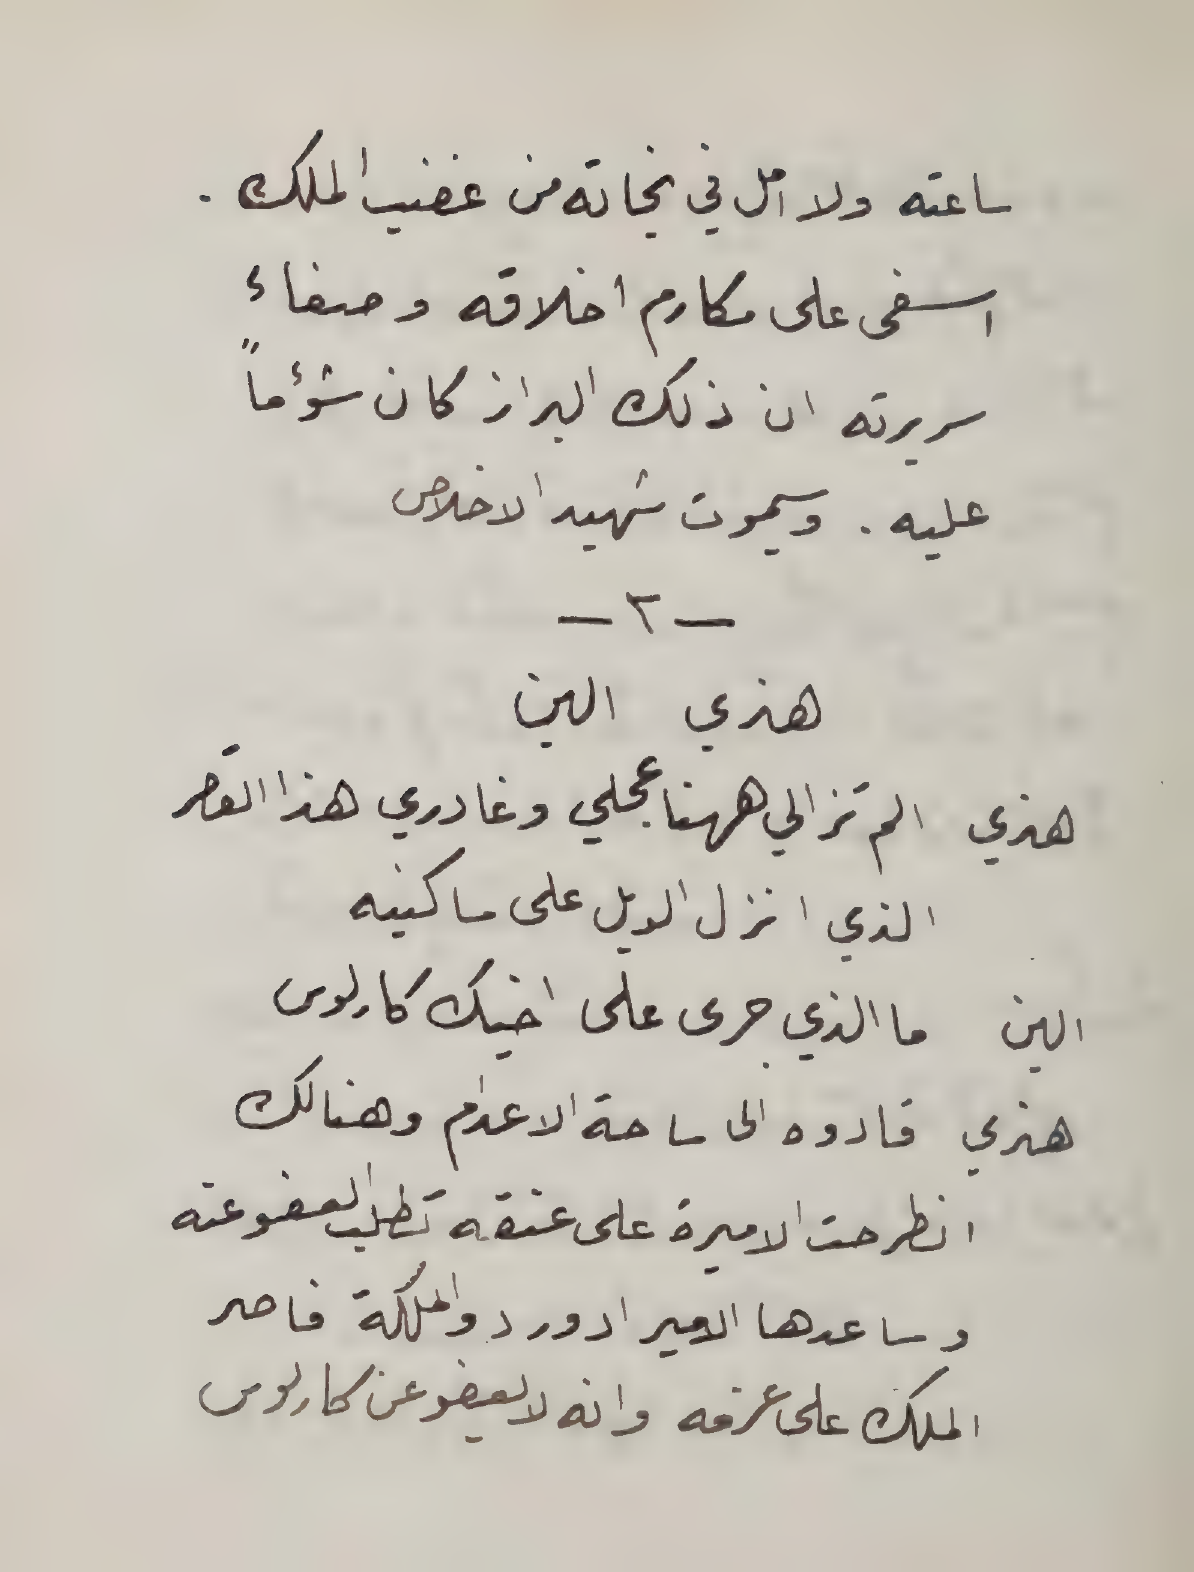 ساعته ولا امل في نجاته من غضب الملك .
اسفي على مكارم اخلاقه وصفاء
سريرته ان ذلك البراز كان شؤماً
عليه . وسيموت شهيد الاخلاص
— ٣ —
هنري الين
هنري الم تزالي ههنا عجلي وغادري هذا القصر
الذي انزل الويل على ساكنيه
الين ما الذي جرى على اخيك كارلوس
هنري قادوه الى ساحة الاعدام وهنالك
انطرحت الاميرة على عنقه تطلب العفو عنه
وساعدها الامير ادورد والملكة فاصر
الملك على عزمه وانه لا يعفو عن كارلوس